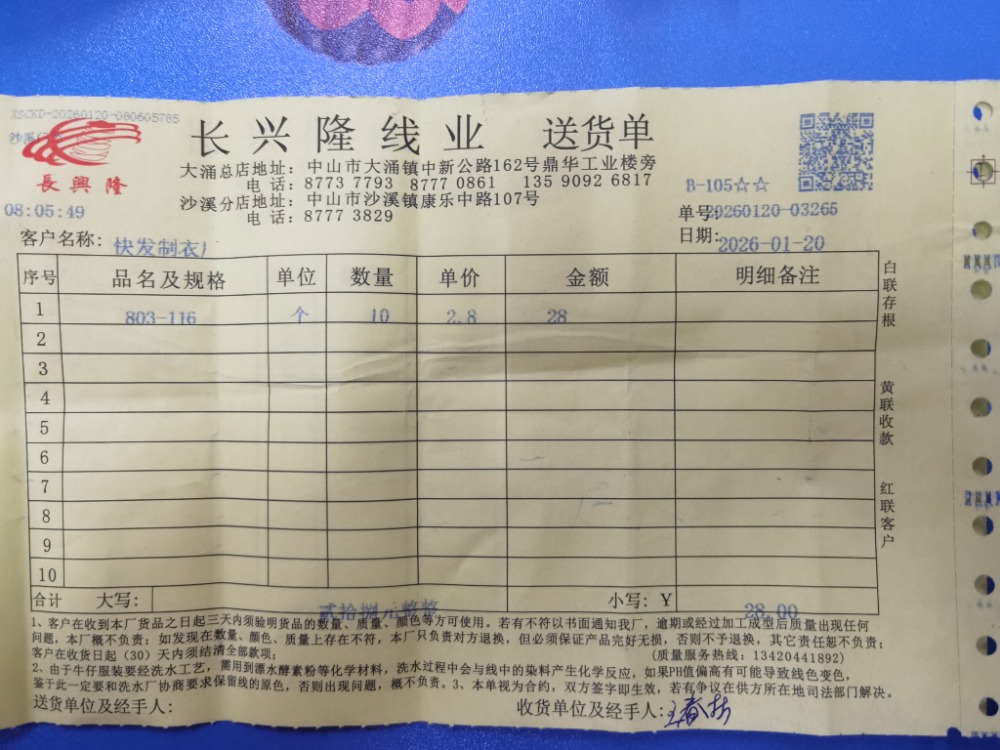 XSCKD-20260120-080605785
長興隆
长兴隆线业 送货单
大涌总店地址：中山市大涌镇中新公路162号鼎华工业楼旁
电话：8773 7793 8777 0861 135 9092 6817
沙溪分店地址：中山市沙溪镇康乐中路107号
电话：8777 3829
B-105☆☆
08:05:49
单号:20260120-03266
客户名称：快发制衣厂
日期:2026-01-20
序号 品名及规格 单位 数量 单价 金额 明细备注
1 803-116 个 10 2.8 28
2
3
4
5
6
7
8
9
10
合计 大写： 贰拾捌元整整 小写：Y 28.00
白联存根
黄联收款
红联客户
1、客户在收到本厂货品之日起三天内须验明货品的数量、质量、颜色等方可使用。若有不符以书面通知我厂，逾期或经过加工成型后质量出现任何
问题，本厂概不负责；如发现在数量、颜色、质量上存在不符，本厂只负责对方退换，但必须保证产品完好无损，否则不予退换，其它责任恕不负责；
客户在收货日起（30）天内须结清全部款项； (质量服务热线：13420441892)
2、由于牛仔服装要经洗水工艺，需用到漂水酵素粉等化学材料，洗水过程中会与线中的染料产生化学反应，如果PH值偏高有可能导致线色变色，
鉴于此一定要和洗水厂协商要求保留线的原色，否则出现问题，概不负责。3、本单视为合约，双方签字即生效，若有争议在供方所在地司法部门解决。
送货单位及经手人： 收货单位及经手人：